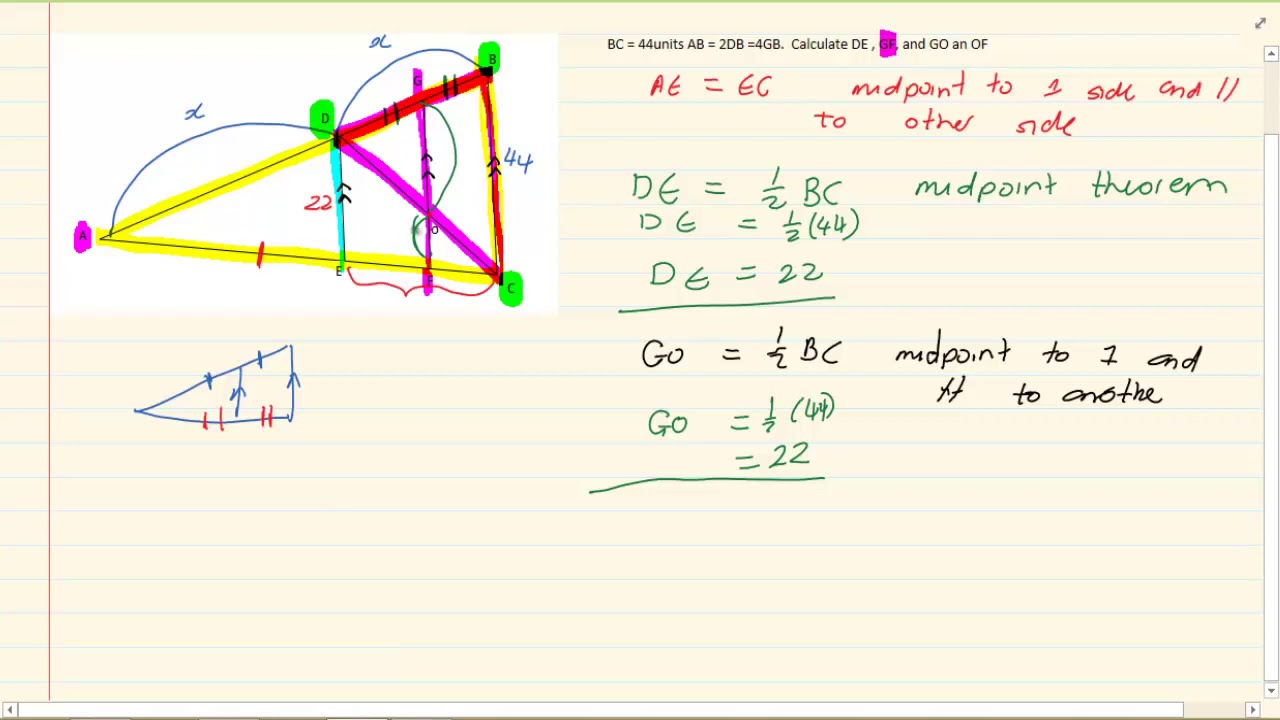 BC = 44units AB = 2DB =4GB. Calculate DE , GF, and GO an OF
AE = EC midpoint to 1 side and //
to other side
DE = 1/2 BC midpoint theorem
DE = 1/2 (44)
DE = 22
GO = 1/2 BC midpoint to 1 and
// to anothe
GO = 1/2 (44)
= 22
x
B
G
x
D
44
22
A
O
E
F
C